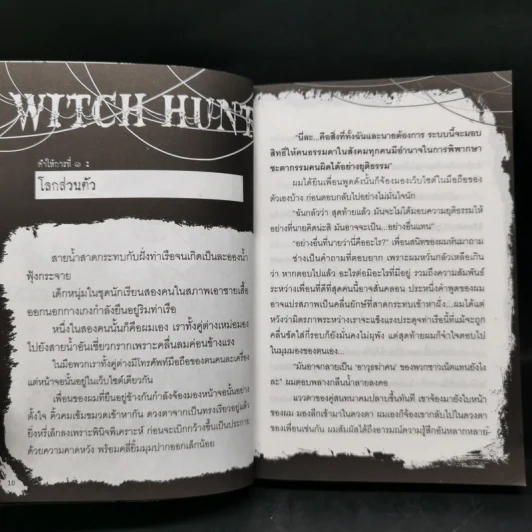 WITCH HUNT
คำให้การที่ ๑ :
โลกส่วนตัว
สายน้ำสาดกระทบกับฝั่งท่าเรือจนเกิดเป็นละอองน้ำ
ฟุ้งกระจาย
เด็กหนุ่มในชุดนักเรียนสองคนในสภาพเอาชายเสื้อ
ออกนอกกางเกงกำลังยืนอยู่ริมท่าเรือ
หนึ่งในสองคนนั้นก็คือผมเอง เราทั้งคู่ต่างเหม่อมอง
ไปยังสายน้ำอันเชี่ยวกรากเพราะคลื่นลมค่อนข้างแรง
ในมือพวกเราทั้งคู่ต่างมีโทรศัพท์มือถือของตนคนละเครื่อง
แต่หน้าจอนั้นอยู่ในเว็บไซต์เดียวกัน
เพื่อนของผมที่ยืนอยู่ข้างกันกำลังจ้องมองหน้าจออย่าง
ตั้งใจ คิ้วคมเข้มขมวดเข้าหากัน ดวงตาจากเป็นทรงเรียวอยู่แล้ว
ยิ่งหรี่เล็กลงเพราะพินิจพิเคราะห์ ก่อนจะเบิกกว้างขึ้นเป็นประกาย
ด้วยความคาดหวัง พร้อมคลี่ยิ้มมุมปากออกเล็กน้อย
10
"นี่ละ...คือสิ่งที่ทั้งฉันและนายต้องการ ระบบนี้จะมอบ
สิทธิ์ให้คนธรรมดาในสังคมทุกคนมีอำนาจในการพิพากษา
ชะตากรรมคนผิดได้อย่างยุติธรรม"
ผมได้ยินเพื่อนพูดดังนั้นก็จ้องมองเว็บไซต์ในมือถือของ
ตัวเองบ้าง ก่อนตอบกลับไปอย่างไม่มั่นใจนัก
"ฉันกลัวว่า สุดท้ายแล้ว มันจะไม่ได้มอบความยุติธรรมให้
อย่างที่นายคิดน่ะสิ มันอาจจะเป็น...อย่างอื่นแทน"
"อย่างอื่นที่นายว่านี่คืออะไร?" เพื่อนสนิทของผมหันมาถาม
ช่างเป็นคำถามที่ตอบยาก เพราะผมหวั่นกลัวเหลือเกิน
ว่า หากตอบไปแล้ว อะไรต่อมิอะไรที่มีอยู่ รวมถึงความสัมพันธ์
ระหว่างเพื่อนที่ดีที่สุดคนนี้อาจสั่นคลอน ประหนึ่งคำพูดของผม
อาจแปรสภาพเป็นคลื่นยักษ์ที่สาดกระทบเข้าหาฝั่ง...ผมได้แต่
หวังว่ามิตรภาพระหว่างเราจะแข็งแรงประดุจท่าเรือนี้ที่แม้จะถูก
คลื่นซัดใส่กี่รอบก็ยังมั่นคงไม่ผุพัง แต่สุดท้ายผมก็จำใจตอบไป
ในมุมมองของตนเอง...
"มันอาจกลายเป็น 'อาวุธฆ่าคน' ของพวกชาวเน็ตแทนยังไง
ละ" ผมตอบพลางกลืนน้ำลายลงคอ
แววตาของคู่สนทนาผมปลาบขึ้นทันที เขาจ้องมายังใบหน้า
ของผม มองลึกเข้ามาในดวงตา ผมเองก็จ้องเขากลับไปในดวงตา
ของเพื่อนเช่นกัน ผมสัมผัสได้ถึงอารมณ์ความรู้สึกอันหลากหลาย